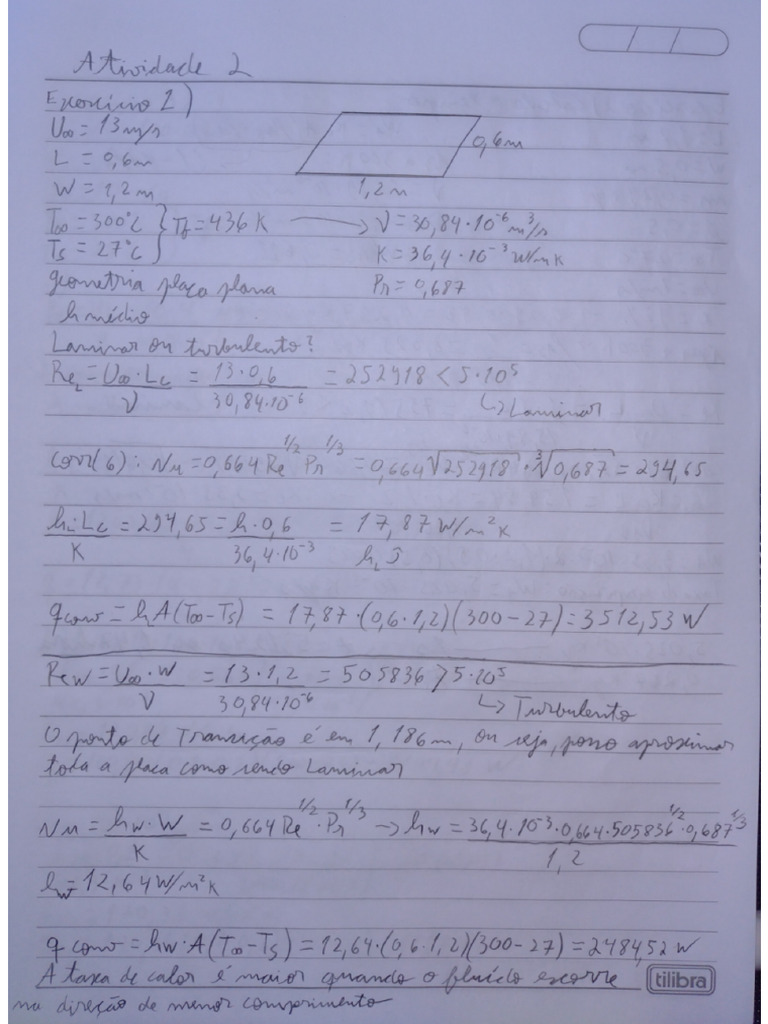 Atividade 2
Exercício 2)
U∞ = 13 m/s
0,6m
L = 0,6m
W = 1,2 m
1,2 m
T∞ = 300°C } Tf = 436 K → ν = 30,84·10⁻⁶ m³/s
Ts = 27°C K = 36,4·10⁻³ W/mK
geometria placa plana Pr = 0,687
h médio
Laminar ou turbulento?
Re_L = U∞·Lc / ν = 13·0,6 / 30,84·10⁻⁶ = 252918 < 5·10⁵
↳ Laminar
Corr(6): Nu = 0,664 Re^1/2 Pr^1/3 = 0,664 √252918 · ³√0,687 = 294,65
h·Lc / K = 294,65 = h·0,6 / 36,4·10⁻³ = 17,87 W/m²K
h_L
qconv = hA(T∞-Ts) = 17,87·(0,6·1,2)(300-27) = 3512,53 W
Re_W = U∞·W / ν = 13·1,2 / 30,84·10⁻⁶ = 505836 > 5·10⁵
↳ Turbulento
O ponto de Transição é em 1,186m, ou seja, posso aproximar
toda a placa como sendo Laminar
Nu = hw·W / K = 0,664 Re^1/2·Pr^1/3 → hw = 36,4·10⁻³·0,664·505836^1/2·0,687^1/3 / 1,2
hw = 12,64 W/m²K
qconv = hw·A(T∞-Ts) = 12,64·(0,6·1,2)(300-27) = 2484,52 W
A taxa de calor é maior quando o fluído escorre
na direção de menor comprimento
tilibra